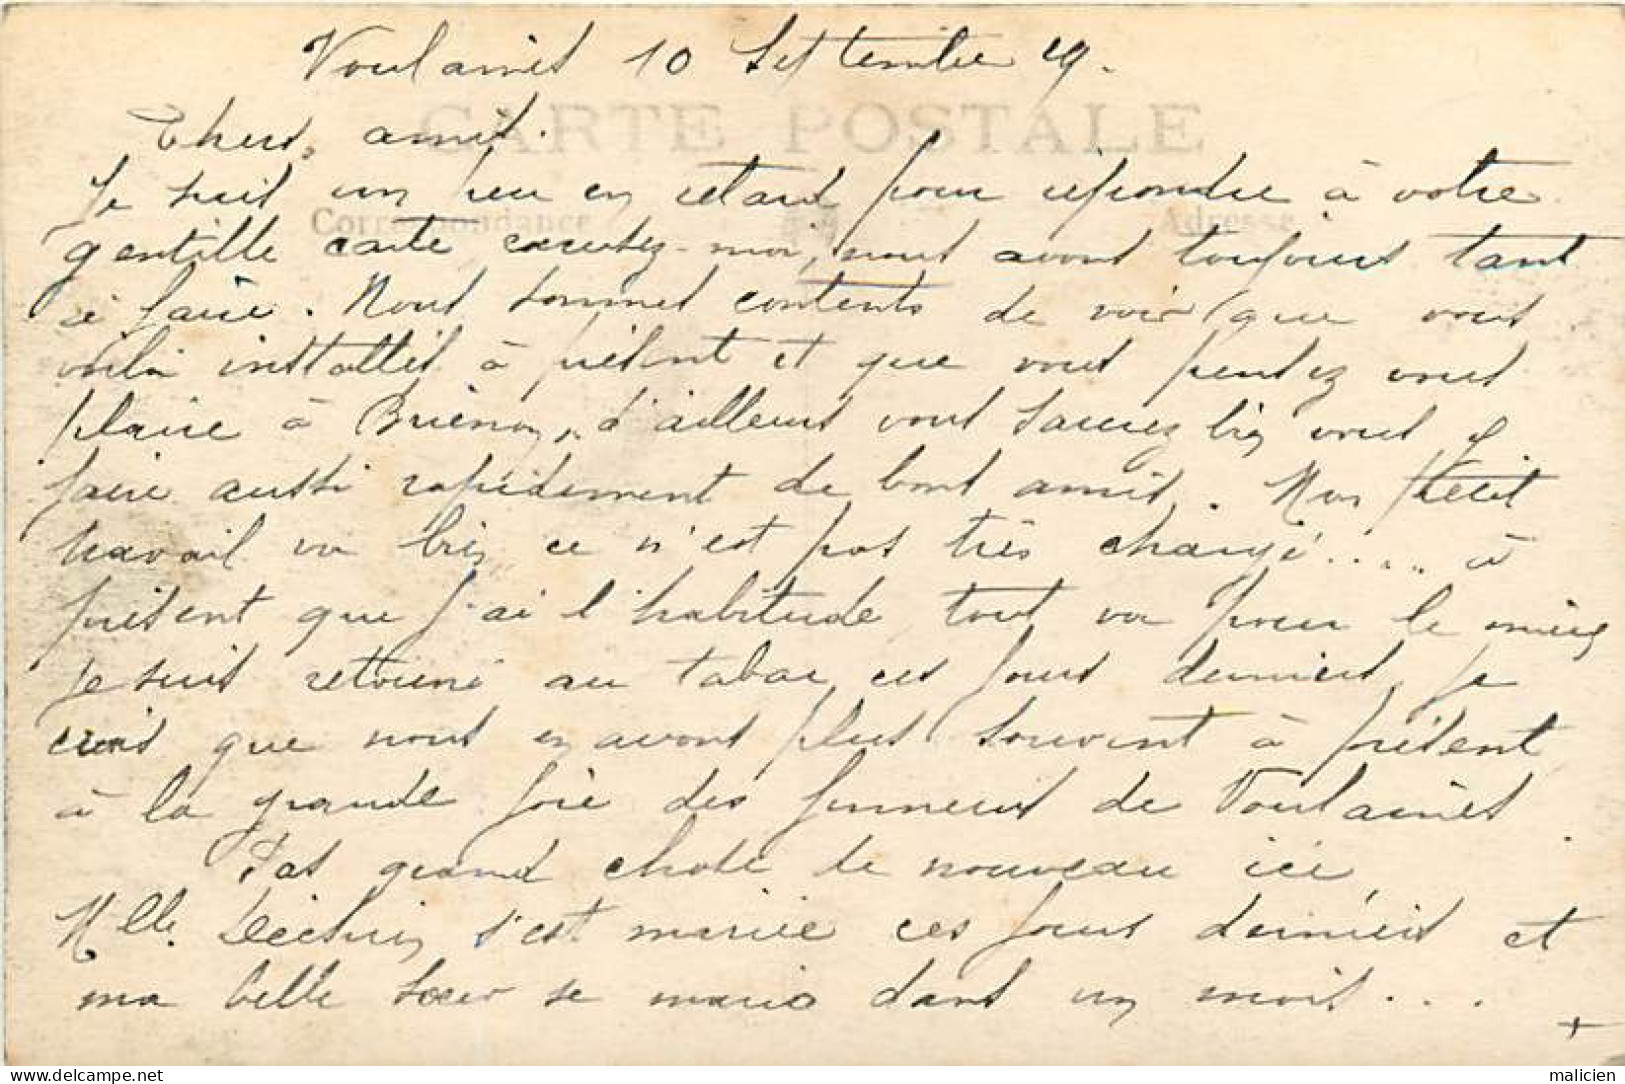 Voulaines 10 Septembre 29.
CARTE POSTALE
Chers amis.
Je suis un peu en retard pour répondre à votre
Correspondance Adresse
gentille carte excusez-moi, nous avons toujours tant
à faire. Nous sommes contents de voir que vous
voilà installés à présent et que vous pensez vous
plaire à Brienon, d'ailleurs vous saurez bien vous y
faire aussi rapidement de bons amis. Mon petit
travail va bien ce n'est pas très changé..... à
présent que j'ai l'habitude, tout va pour le mieux
je suis retourné au tabac ces jours derniers, je
crois que nous en avons plus souvent à présent
à la grande joie des fumeurs de Voulaines.
Pas grand chose de nouveau ici,
Melle s'est mariée ces jours derniers et
ma belle sœur se marie dans un mois...
+
delcampe.net
malicien